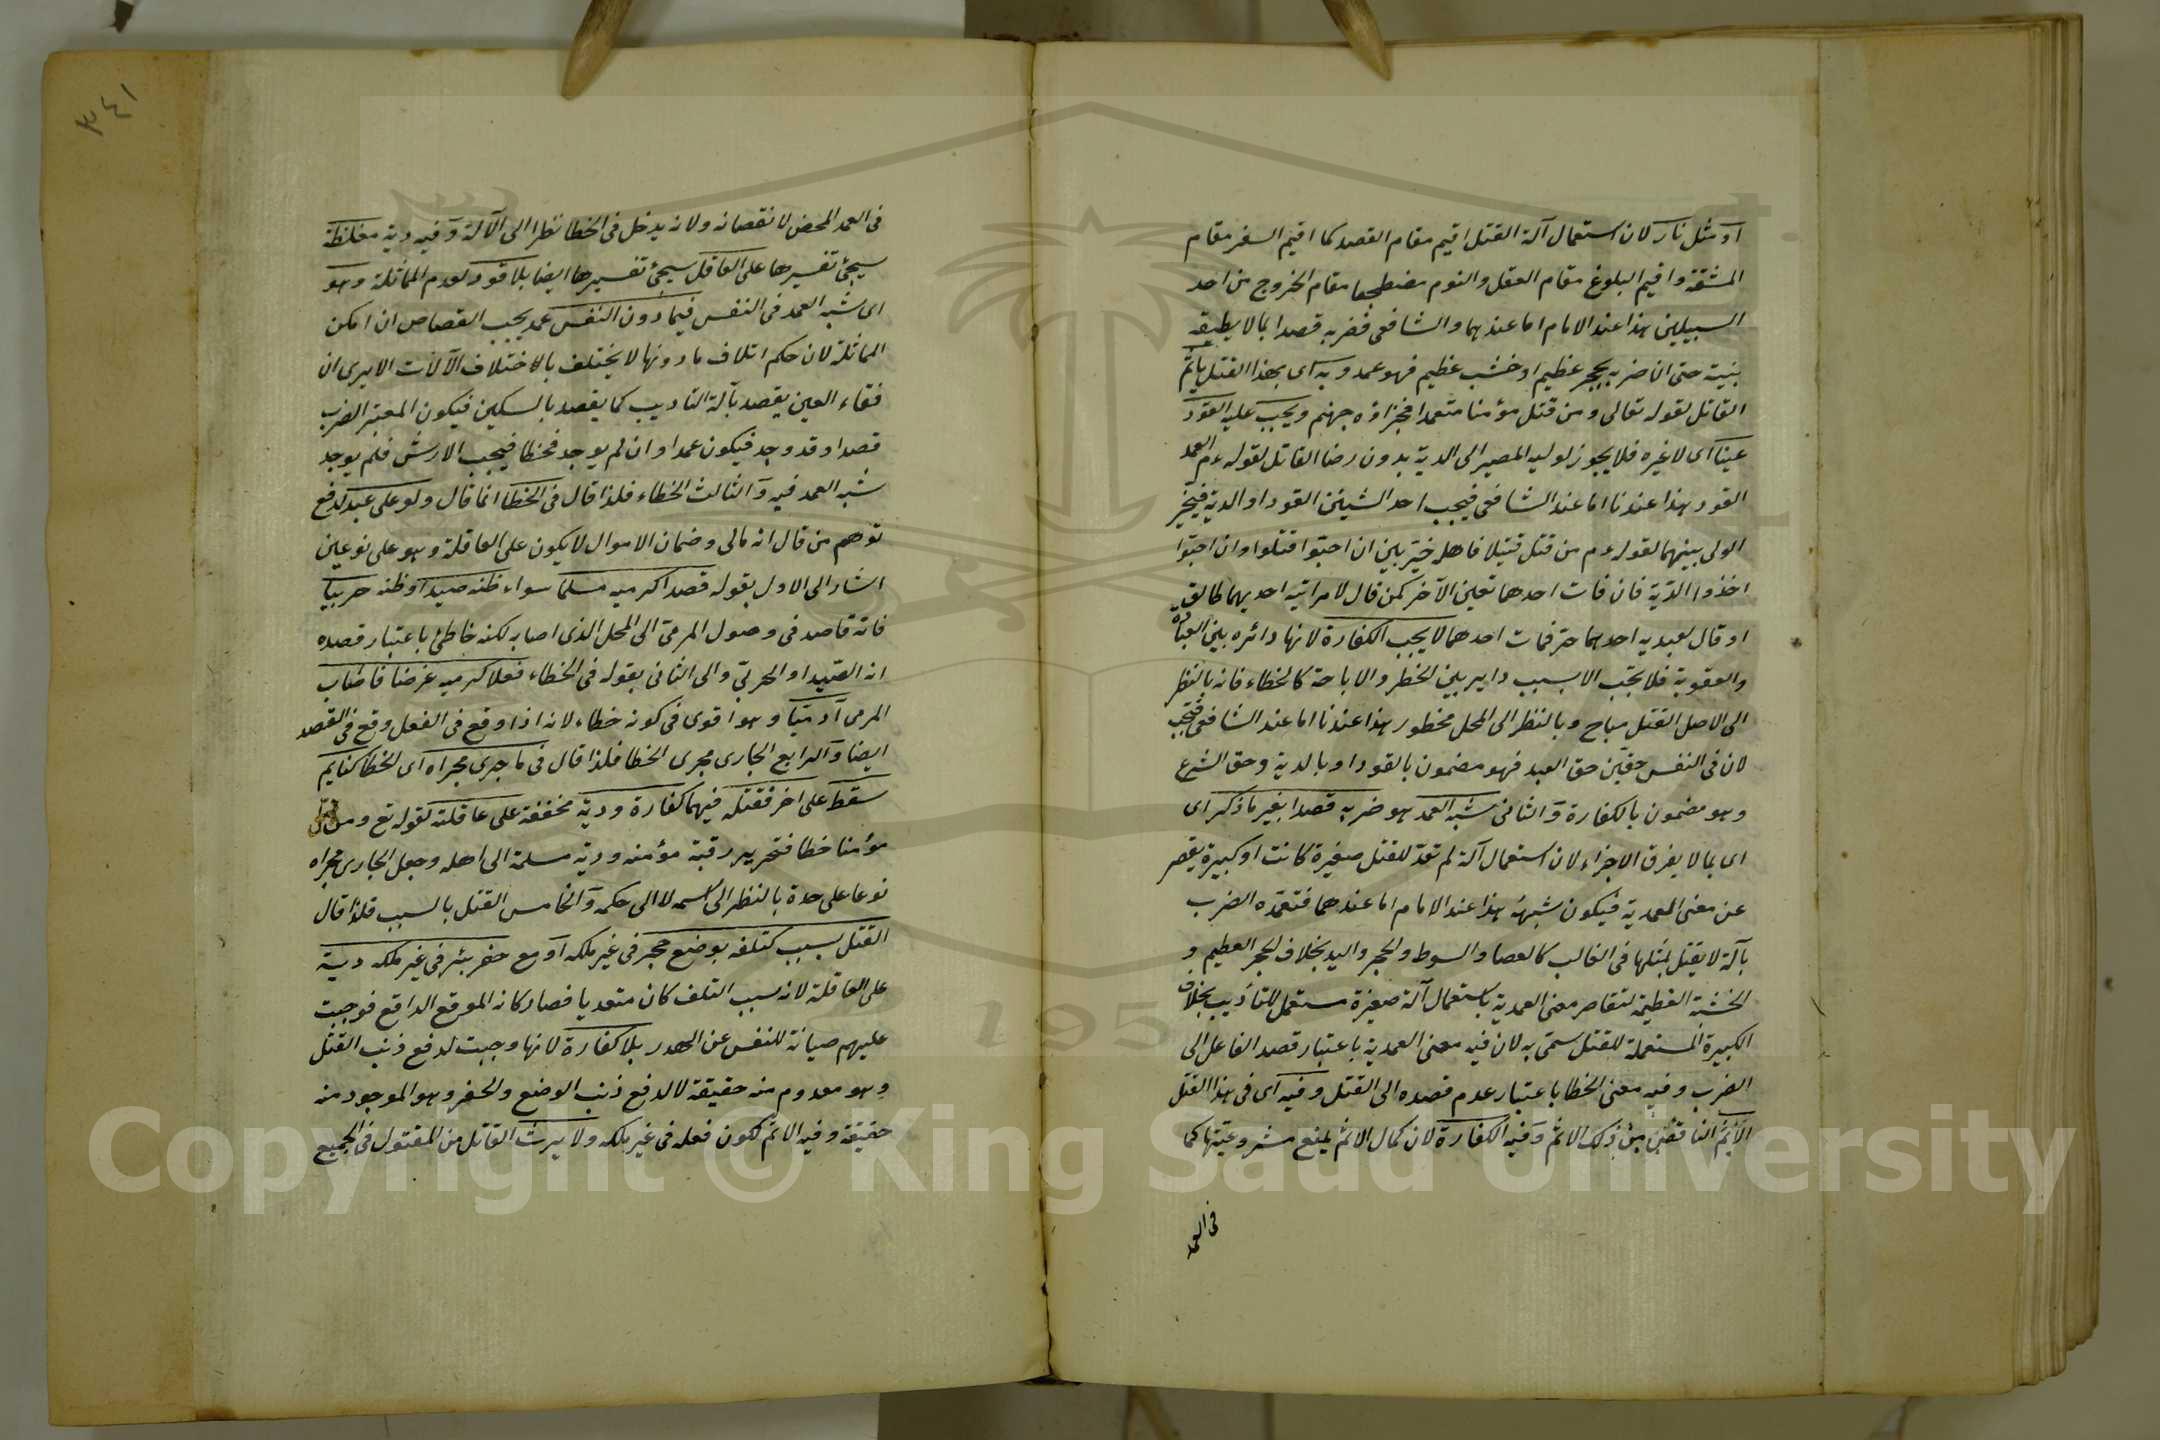 او مثل نار لان استعمال آلة القتل اقيم مقام القصد كما اقيم السفر مقام
المشقة واقيم البلوغ مقام العقل والنوم مضطجعا مقام الخروج من احد
السبيلين هذا عند الامام اما عندهما والشافعى فضربه قصدا بما لا يطيقه
بنيته حتى ان ضربه بحجر عظيم او خشب عظيم فهو عمد وبه اى بهذا القتل يأثم
القاتل لقوله تعالى ومن قتل مؤمنا متعمدا فجزاؤه جهنم ويجب عليه القود
عينا اى لا غيره فلا يجوز لوليه المصير الى الدية بدون رضا القاتل لقوله عم العمد
القود هذا عندنا اما عند الشافعى فيجب احد الشيئين القود او الدية فيتخير
الولى بينهما لقوله عم من قتل قتيلا فاهله خير بين ان احبوا قتلوا وان احبوا
اخذوا الدية فان فات احدهما تعين الآخر كمن قال لامراتيه احديهما طالق
او قال لعبديه احدهما حر فمات احدهما لا يجب الكفارة لانها دائره بين العبادة
والعقوبة فلا تجب الا بسبب داير بين الحظر والاباحة كالخطاء فانه بالنظر
الى الاصل القتل مباح وبالنظر الى المحل محظور هذا عندنا اما عند الشافعى فتجب
لان فى النفس حقين حق العبد فهو مضمون بالقود او بالدية وحق الشرع
وهو مضمون بالكفارة والثانى شبه العمد هو ضربه قصدا بغير ما ذكر اى
اى بما لا يفرق الاجزاء لان استعمال آلة لم تعد للقتل صغيرة كانت او كبيرة يقصر
عن معنى العمدية فيكون شبهه هذا عند الامام اما عندهما فتعمده الضرب
بآلة لا يقتل بمثلها فى الغالب كالعصا والسوط والحجر واليد بخلاف الحجر العظيم و
الخشبة العظيمة لتقاصر معنى العمدية باستعمال آلة صغيرة مستعمل للتأديب بخلاف
الكبيرة المستعملة للقتل سمى به لان فيه معنى العمدية باعتبار قصد الفاعل الى
الضرب وفيه معنى الخطا باعتبار عدم قصده الى القتل وفيه اى فى هذا القتل
الاثم الناقص من ذلك الاثم وفيه الكفارة لان كمال الاثم يمنع مشروعيتها كما
فى العمد
٣٤١
فى العمد المحض لا نقصانه ولانه يدخل فى الخطا نظرا الى الآلة وفيه دية مغلظة
سيجئ تفسيرها على العاقل سيجئ تفسيرها ايضا بلا قود لعدم المماثلة وهو
اى شبه العمد فى النفس فيما دون النفس عمد يجب القصاص ان امكن
المماثلة لان حكم اتلاف ما دونها لا يختلف بالاختلاف الآلات الا يرى ان
فقاء العين يقصد بآلة التاديب كما يقصد بالسكين فيكون المعتبر الضرب
قصدا وقد وجد فيكون عمدا وان لم يوجد فخطا فيجب الارش فلم يوجد
شبه العمد فيه والثالث الخطاء فلذا قال فى الخطا انما قال ولو على عبد لدفع
توهم من قال انه مالى وضمان الاموال لا يكون على العاقلة وهو على نوعين
اشار الى الاول بقوله قصدا كرميه مسلما سواء ظنه صيدا او ظنه حربيا
فانه قاصد فى وصول المرمى الى المحل الذى اصابه لكنه خاطئ باعتبار قصده
انه الصيد او الحربى والى الثانى بقوله فى الخطاء فعلا كرميه غرضا فاصاب
المرمى آدميا وهو اقوى فى كونه خطاء لانه اذا وقع فى الفعل وقع فى القصد
ايضا والرابع الجارى مجرى الخطا فلذا قال فى ما جرى مجراه اى الخطا كنايم
سقط على اخر فقتله فيهما كفارة ودية مخففة على عاقلته لقوله تع ومن قتل
مؤمنا خطا فتحرير رقبة مؤمنه ودية مسلمة الى اهله وجعل الجارى مجراه
نوعا على حدة بالنظر الى اسمه لا الى حكمه والخامس القتل بالسبب فلذا قال
القتل بسبب كتلفه بوضع حجر فى غير ملكه او مع حفر بئر فى غير ملكه دية
على العاقلة لانه سبب التلف كان متعديا فصار كانه الموقع الدافع فوجبت
عليهم صيانة للنفس عن الهدر بلا كفارة لانها وجبت لدفع ذنب القتل
وهو معدوم منه حقيقة لا لدفع ذنب الوضع والحفر وهو الموجود منه
حقيقة وفيه الاثم لكون فعله فى غير ملكه ولا يرث القاتل من المقتول فى الجميع
Copyright © King Saud University
195